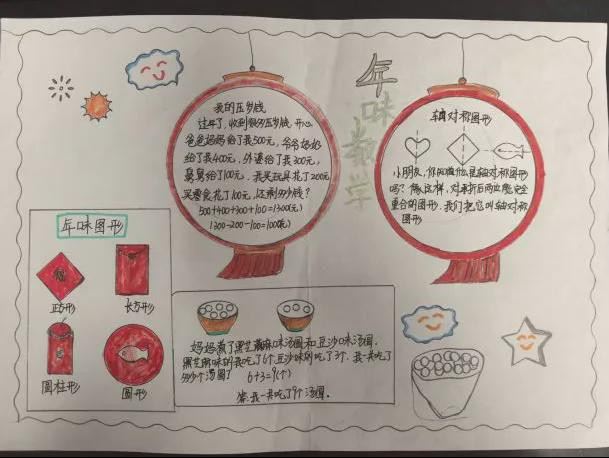 年味数学
我的压岁钱
过年了，收到很多压岁钱，开心
爸爸妈妈给了我500元，爷爷奶奶
给了我400元，外婆给了我300元，
舅舅给了100元，我买玩具花了200元
买零食花了100元，还剩多少钱？
500+400+300+100=1300(元)
1300-200-100=1000(元)
轴对称图形
小朋友，你知道什么是轴对称图形
吗？像这样，对折后两边能完全
重合的图形，我们把它叫轴对称
图形
年味图形
正方形
长方形
圆柱形
圆形
妈妈煮了黑芝麻味汤圆和豆沙味汤圆，
黑芝麻味的我吃了6个豆沙味的吃了3个，我一共吃了
多少个汤圆？ 6+3=9(个)
答：我一共吃了9个汤圆。